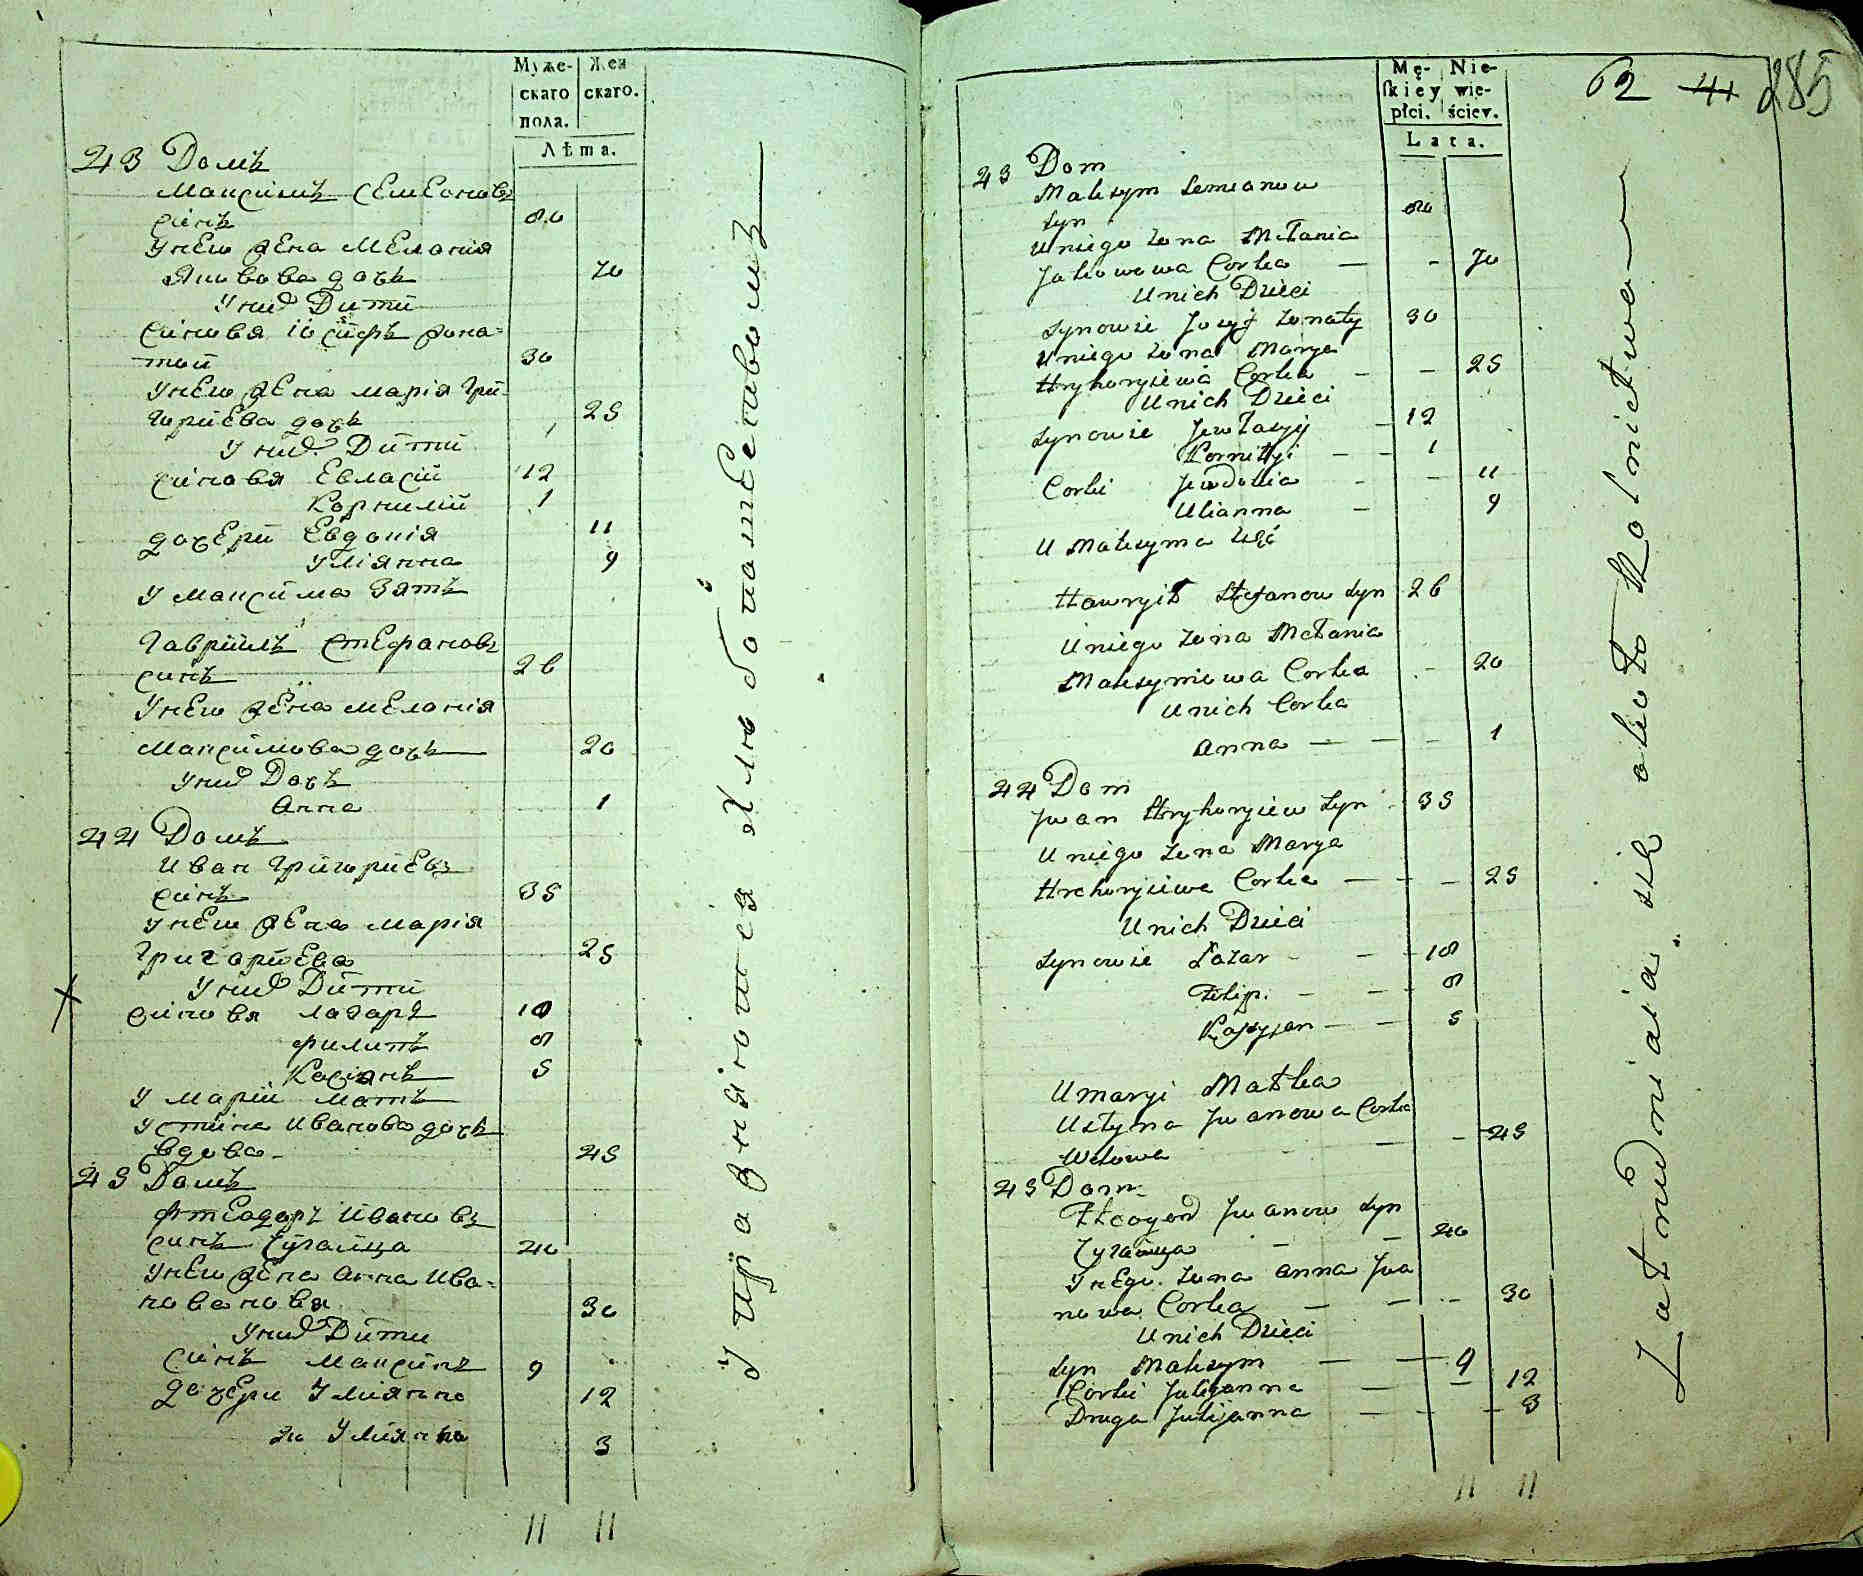 Муже-
скаго
пола.
Жен
скаго.
Лѣта.
43 Домъ
Максимъ Семеоновъ
синъ 80
У нево жена Мелания
Яковова дочъ 70
У них Дити
синовя Iосифъ жона-
тий 30
У нево жена Марія Гри-
гориева дочъ 25
У них Дити
синовя Евласій 12
Корнилій 1
дочери Евдокія 11
Уліянна 9
У Максима Зятъ
Гавриилъ Стефановъ
синъ 26
У нево жена Меланія
Максимова дочъ 20
У них Дочъ
Анна 1
44 Домъ
Иван Григориевъ
синъ 35
У нево жена Марія
Григориева 25
У них Дити
синовя Лазаръ 10
Филипъ 8
Касіянъ 5
У Маріи матъ
Устина Иванова дочъ
вдова 45
45 Домъ
Фтеодоръ Ивановъ
синъ 40
У нево жена Анна Ива-
нова 30
У них Дити
Синъ Максимъ 9
Дочери Улиянна 12
2я Улиянна 3
11 11
Упражняются хлебопашествомъ
62 41 285
Mę-
ſkiey
płci.
Nie-
wie-
ściey.
Lata.
43 Dom
Maksym Semianow
Syn 80
U niego żona Mełania
Jakowowa Corka — - 70
U nich Dzieci
Synowie Jozyf żonaty 30
U niego żona Marya
Hryhoryiewa Corka — - 25
U nich Dzieci
Synowie Jewłasyj - 12
Korniłyi — - 1
Corki Jewdokia - - 11
Ulianna - 9
U Maksyma Zęć
Hawryił Stefanow Syn 26
U niego żona Mełania
Maksymowa Corka - 20
U nich Corka
Anna — — - 1
44 Dom
Jwan Hryhoryiew Syn 35
U niego żona Marya
Hrehoryiewa Corka — - — 25
U nich Dzieci
Synowie Łazar - — - 10
Filip. — — - 8
Kasyjan — — 5
U Maryi Matka
Ustyna Jwanowa Corka
Wdowa — - 45
45 Dom
Jwanow Syn
— 40
У nego żona Anna Jwa
nowa Corka — — - 30
U nich Dzieci
Syn Maksym — — 9
Corki Julijanna — — 12
Druga Julijanna — — - 3
11 11
Zatrudniaią się około Rolnictwa